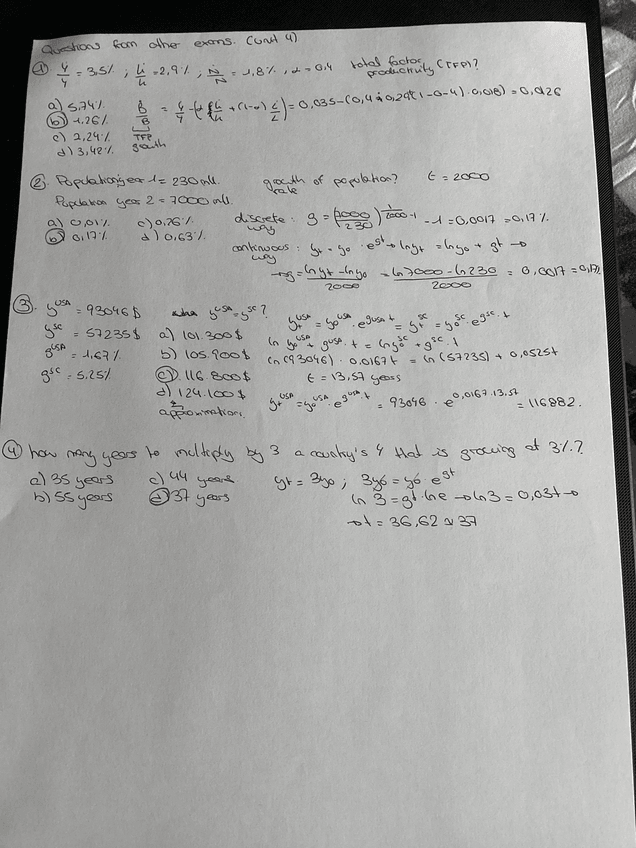 Questions from other exams. (Unit 4)
① Ẏ/Y = 3,5% ; k̇/k = 2,9% ; Ṅ/N = 1,8% , α = 0,4 total factor productivity (TFP)?
a) 5,74%
ⓑ 1,26%
c) 2,24%
d) 3,42%
Ḃ/B = Ẏ/Y - (α k̇/k + (1-α) L̇/L) = 0,035 - (0,4 · 0,29 (1-0-4) · 0,018) = 0,0126
TFP growth
② Population year 1 = 230 mill. growth rate of population? t = 2000
Population year 2 = 7000 mill.
a) 0,01% c) 0,26%
ⓑ 0,17% d) 0,63%
discrete way : g = (7000/230)^(1/2000-1) - 1 = 0,0017 = 0,17%
continuous way : yt = y0 · e^gt → ln yt = ln y0 + gt →
→ g = (ln yt - ln y0)/2000 = (ln 7000 - ln 230)/2000 = 0,0017 = 0,17%
③ y^USA = 93046$ y^USA = y^SC ?
y^SC = 57235$
g^USA = 1,67%
g^SC = 5,25%
a) 101.300$
b) 105.900$
ⓒ 116.800$
d) 124.100$
approximation.
yt^USA = y0^USA · e^(gUSA · t) = yt^SC = y0^SC · e^(gSC · t)
ln y0^USA + g^USA · t = ln y0^SC + g^SC · t
ln (93046) · 0,0167t = ln (57235) + 0,0525t
t = 13,57 years
yt^USA = y0^USA · e^(gUSA · t) = 93046 · e^(0,0167 · 13,57) = 116882.
④ how many years to multiply by 3 a country's Y that is growing at 3%?
a) 35 years c) 44 years
b) 55 years ⓓ 37 years
yt = 3y0 ; 3y0 = y0 e^gt
ln 3 = gt · ln e → ln 3 = 0,03t →
→ t = 36,62 ≈ 37